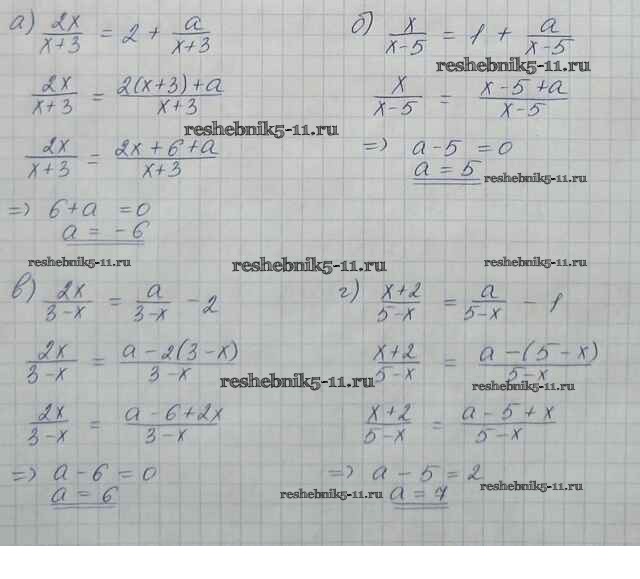 а) 2x/(x+3) = 2 + a/(x+3)
2x/(x+3) = (2(x+3)+a)/(x+3)
2x/(x+3) = (2x+6+a)/(x+3)
=> 6+a = 0
a = -6
б) x/(x-5) = 1 + a/(x-5)
reshebnik5-11.ru
x/(x-5) = (x-5+a)/(x-5)
reshebnik5-11.ru
=> a-5 = 0
a = 5
reshebnik5-11.ru
reshebnik5-11.ru
reshebnik5-11.ru
reshebnik5-11.ru
в) 2x/(3-x) = a/(3-x) - 2
2x/(3-x) = (a-2(3-x))/(3-x)
2x/(3-x) = (a-6+2x)/(3-x)
=> a-6 = 0
a = 6
г) (x+2)/(5-x) = a/(5-x) - 1
(x+2)/(5-x) = (a-(5-x))/(5-x)
reshebnik5-11.ru
reshebnik5-11.ru
(x+2)/(5-x) = (a-5+x)/(5-x)
=> a-5 = 2
a = 7
reshebnik5-11.ru
reshebnik5-11.ru